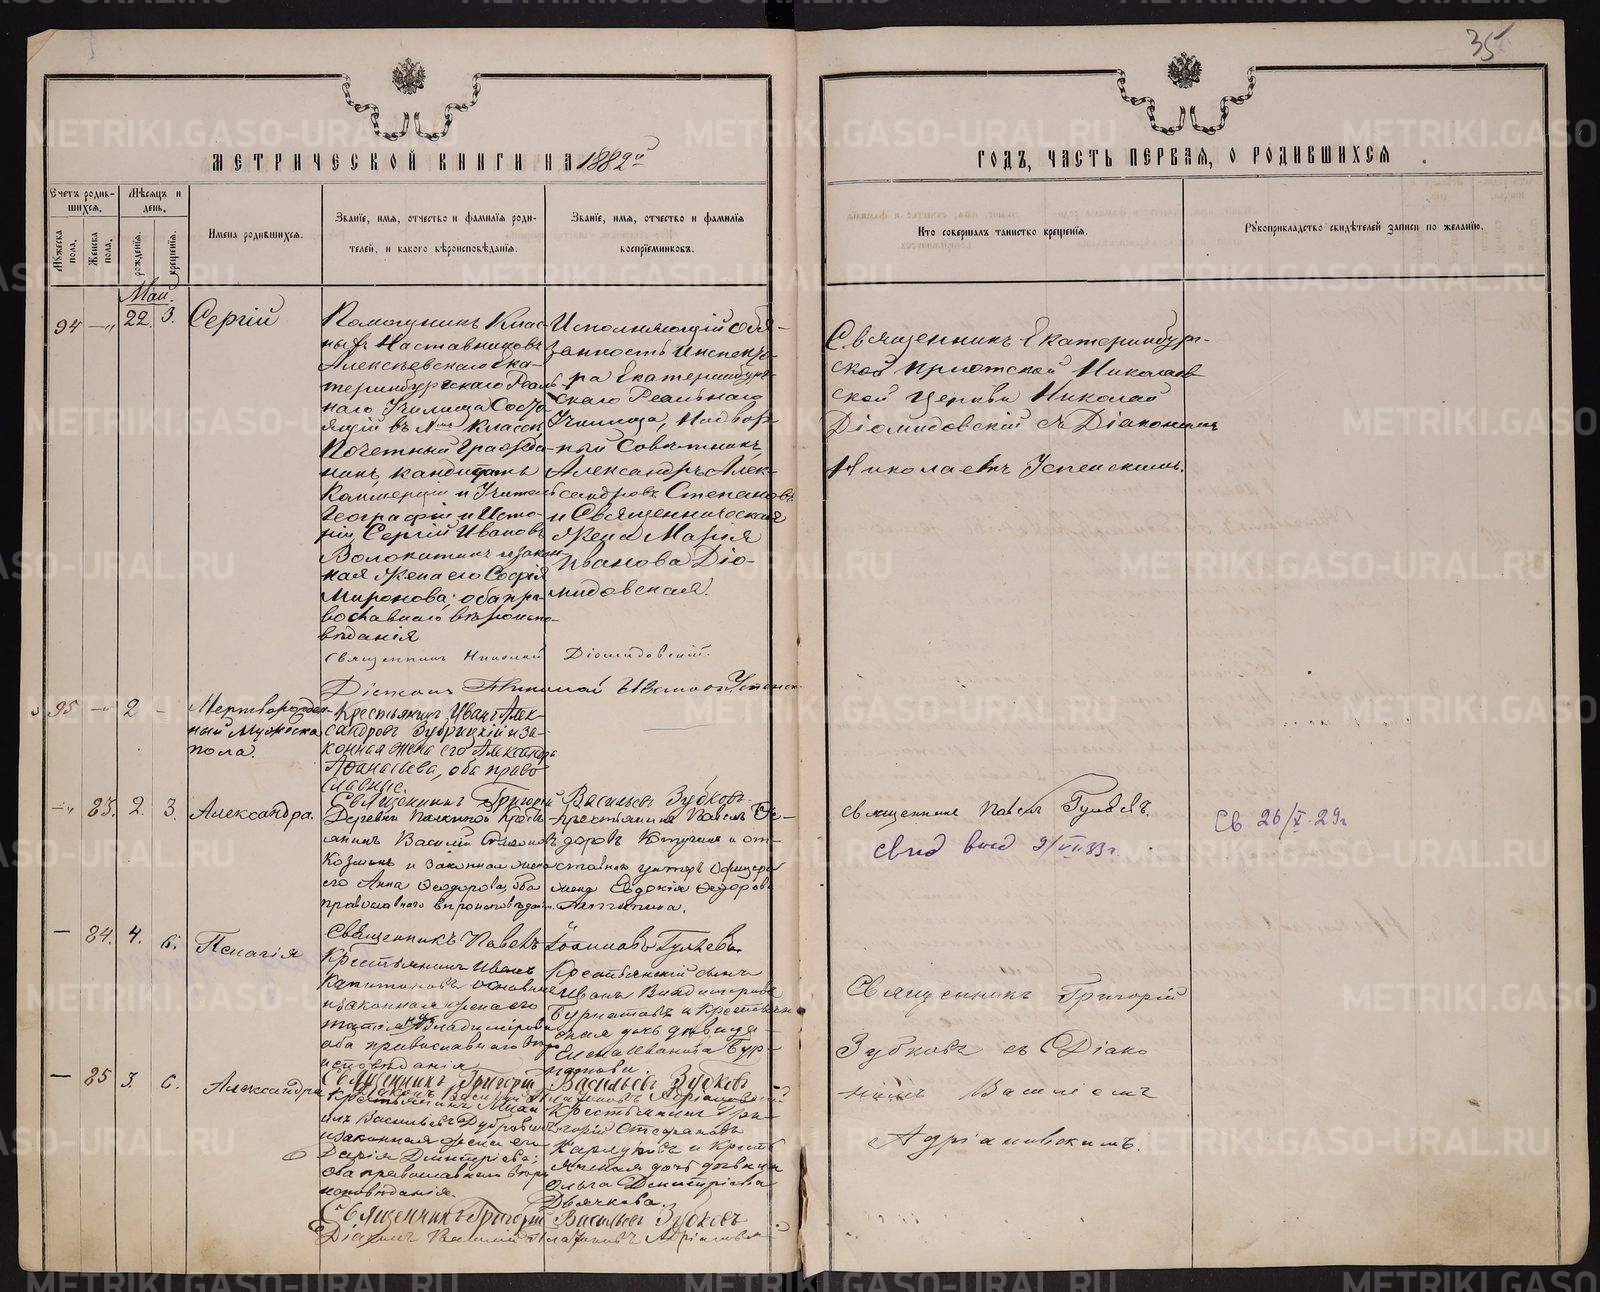 35
МЕТРИЧЕСКОЙ КНИГИ НА 1882й
ГОДЪ, ЧАСТЬ ПЕРВАЯ, О РОДИВШИХСЯ
Счетъ родив-
шихся.
Мѣсяцъ и
день.
Мужеска пола.
Женска пола.
рожденія.
крещенія.
Имена родившихся.
Званіе, имя, отчество и фамилія роди-
телей, и какого вѣроисповѣданія.
Званіе, имя, отчество и фамилія
воспріемниковъ.
Кто совершалъ таинство крещенія.
Рукоприкладство свидѣтелей записи по желанію.
Май.
94 —„ 22. 3. Сергій
Помощникъ Клас-
ныхъ Наставниковъ
Алексѣевскаго Ека-
теринбургскаго Реаль-
наго Училища Состо
ящій въ классѣ
Почетный Гражда-
нинъ, кандидатъ
Коммерціи и Учитель
Географіи и Исто-
ріи Сергій Ивановъ
Волокитинъ и закон-
ная жена его Софія
Миронова; оба пра-
вославнаго вѣроиспо-
вѣданія
Исполняющій обя-
занность Инспекто-
ра Екатеринбург-
скаго Реальнаго
Училища, Надвор-
ный Совѣтникъ
Александръ Алек-
сандровъ Степановъ
и Священническая
жена Марія
Иванова Діо-
мидовская.
Священникъ Екатеринбург-
ской пріютской Николаев
ской церкви Николай
Діомидовскій съ Діакономъ
Николаемъ Успенскимъ.
Священникъ Николай Діомидовскій.
Діаконъ Николай Ивановъ Успенск
95 —„ 2 -
Мертворожден-
ный Мужеска
пола.
Крестьянинъ Иванъ Алек-
сандровъ Зубрицкій и за-
конная жена его Александра
Афанасьева, оба право
славные.
Священникъ Григорій Васильевъ Зубковъ
—„ 83. 2. 3. Александра.
Деревни Крестъ-
янинъ Василій
Козминъ и законная жена
его Анна Ѳеодорова, оба
православнаго вѣроисповѣданія.
Крестьянинъ Павелъ Ѳе-
доровъ и от-
ставнаго унтеръ офицера
жена Евдокія Ѳедорова
священникъ Павелъ Гуляевъ.
свид выд 9/VII 33 г.
Св 26/X-29 г
Священникъ Павелъ Іоанновъ Гуляевъ
— 84. 4. 6. Пелагія
Крестьянинъ Иванъ
Капитоновъ
и законная жена его
Владимірова
оба православнаго вѣро
исповѣданія
Крестьянскій сынъ
Иванъ
и Крестьян
ская дочь дѣвица
Елена Иванова Бур-
Священникъ Григорій
Зубковъ съ Діако
номъ Василіемъ
Адріановскимъ.
Священникъ Григорій Васильевъ Зубковъ
Діаконъ Василій Платоновъ Адріановскій
— 85 3. 6. Александра
Крестьянинъ Миха
илъ Васильевъ Дубровинъ
и законная жена его
Дарія Дмитріева;
оба православнаго вѣро
исповѣданія.
Крестьянинъ Гри-
горій
и Кресть
янская дочь дѣвица
Ольга Димитріева
Дьячкова.
Священникъ Григорій Васильевъ Зубковъ
Діаконъ Василій Платоновъ Адріановскій
METRIKI.GASO-URAL.RU